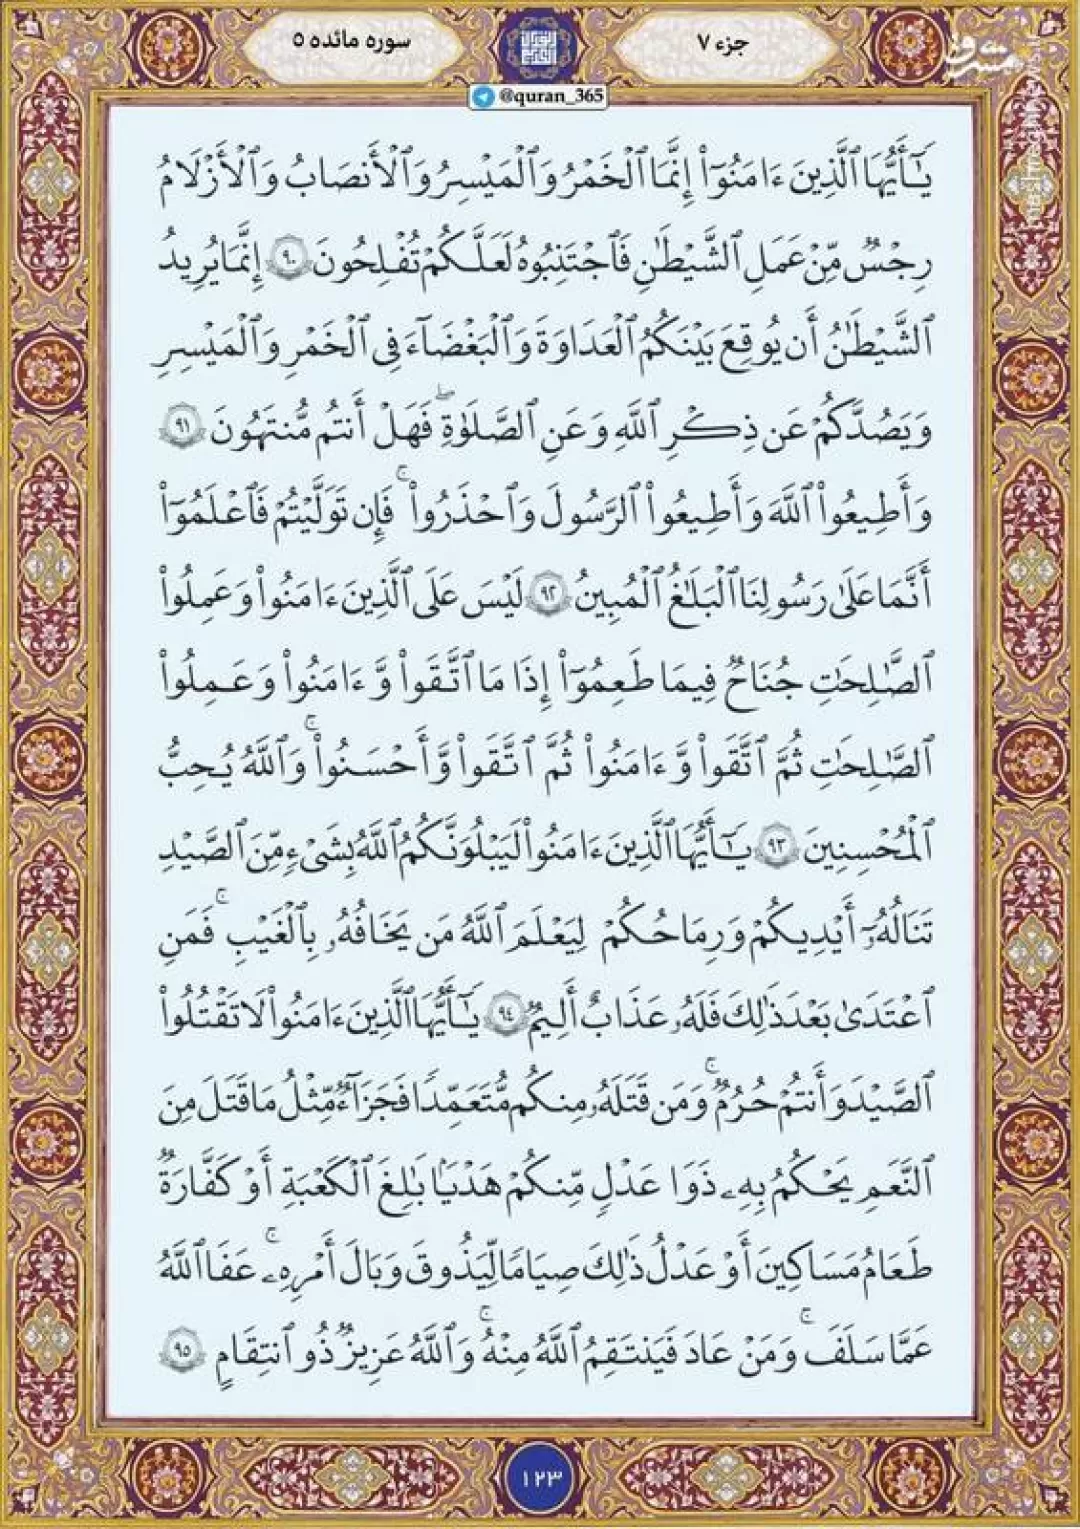 جزء ۷
سوره مائده ۵
مشرق
mashreghnews.ir
@quran_365
يَـٰٓأَيُّهَا ٱلَّذِينَ ءَامَنُوٓاْ إِنَّمَا ٱلْخَمْرُ وَٱلْمَيْسِرُ وَٱلْأَنصَابُ وَٱلْأَزْلَٰمُ
رِجْسٌ مِّنْ عَمَلِ ٱلشَّيْطَٰنِ فَٱجْتَنِبُوهُ لَعَلَّكُمْ تُفْلِحُونَ ٩٠ إِنَّمَا يُرِيدُ
ٱلشَّيْطَٰنُ أَن يُوقِعَ بَيْنَكُمُ ٱلْعَدَاوَةَ وَٱلْبَغْضَآءَ فِى ٱلْخَمْرِ وَٱلْمَيْسِرِ
وَيَصُدَّكُمْ عَن ذِكْرِ ٱللَّهِ وَعَنِ ٱلصَّلَوٰةِ ۖ فَهَلْ أَنتُم مُّنتَهُونَ ٩١
وَأَطِيعُواْ ٱللَّهَ وَأَطِيعُواْ ٱلرَّسُولَ وَٱحْذَرُواْ ۚ فَإِن تَوَلَّيْتُمْ فَٱعْلَمُوٓاْ
أَنَّمَا عَلَىٰ رَسُولِنَا ٱلْبَلَٰغُ ٱلْمُبِينُ ٩٢ لَيْسَ عَلَى ٱلَّذِينَ ءَامَنُواْ وَعَمِلُواْ
ٱلصَّٰلِحَٰتِ جُنَاحٌ فِيمَا طَعِمُوٓاْ إِذَا مَا ٱتَّقَواْ وَّءَامَنُواْ وَعَمِلُواْ
ٱلصَّٰلِحَٰتِ ثُمَّ ٱتَّقَواْ وَّءَامَنُواْ ثُمَّ ٱتَّقَواْ وَّأَحْسَنُواْ ۗ وَٱللَّهُ يُحِبُّ
ٱلْمُحْسِنِينَ ٩٣ يَـٰٓأَيُّهَا ٱلَّذِينَ ءَامَنُواْ لَيَبْلُوَنَّكُمُ ٱللَّهُ بِشَىْءٍ مِّنَ ٱلصَّيْدِ
تَنَالُهُۥٓ أَيْدِيكُمْ وَرِمَاحُكُمْ لِيَعْلَمَ ٱللَّهُ مَن يَخَافُهُۥ بِٱلْغَيْبِ ۚ فَمَنِ
ٱعْتَدَىٰ بَعْدَ ذَٰلِكَ فَلَهُۥ عَذَابٌ أَلِيمٌ ٩٤ يَـٰٓأَيُّهَا ٱلَّذِينَ ءَامَنُواْ لَا تَقْتُلُواْ
ٱلصَّيْدَ وَأَنتُمْ حُرُمٌ ۚ وَمَن قَتَلَهُۥ مِنكُم مُّتَعَمِّدًا فَجَزَآءٌ مِّثْلُ مَا قَتَلَ مِنَ
ٱلنَّعَمِ يَحْكُمُ بِهِۦ ذَوَا عَدْلٍ مِّنكُمْ هَدْيًۢا بَٰلِغَ ٱلْكَعْبَةِ أَوْ كَفَّٰرَةٌ
طَعَامُ مَسَٰكِينَ أَوْ عَدْلُ ذَٰلِكَ صِيَامًا لِّيَذُوقَ وَبَالَ أَمْرِهِۦ ۗ عَفَا ٱللَّهُ
عَمَّا سَلَفَ ۚ وَمَنْ عَادَ فَيَنتَقِمُ ٱللَّهُ مِنْهُ ۗ وَٱللَّهُ عَزِيزٌ ذُو ٱنتِقَامٍ ٩٥
١٢٣